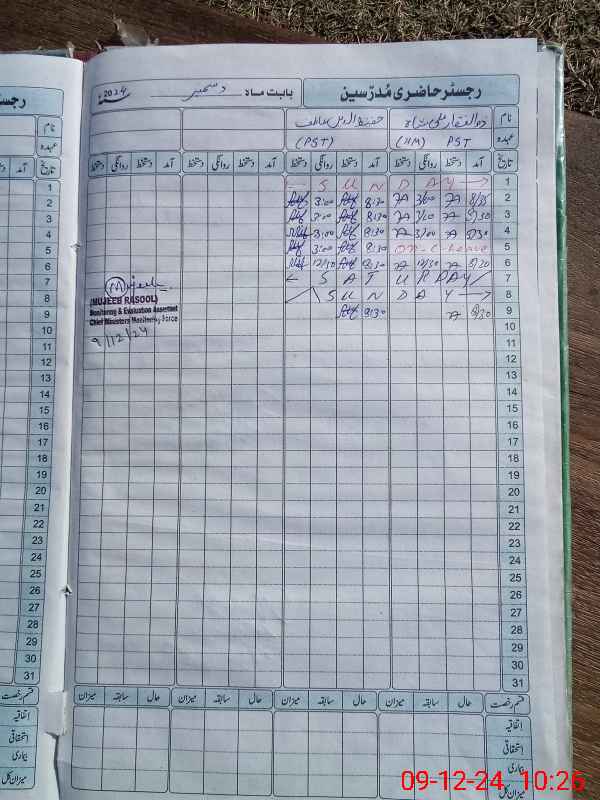 رجسٹر حاضری مُدرّسین
بابت ماہ دسمبر 2024ء
نام ذوالفقار علی شاہ
عہدہ (HM) PST (PST)
تاریخ آمد دستخط روانگی دستخط آمد دستخط روانگی دستخط آمد دستخط روانگی دستخط آمد دستخط روانگی دستخط
1 ← S U N D A Y →
2 8/35 3/00 8:30 3:00
3 8/30 8:30 3:00
4 8/30 3/00 8:30 3:00
5 on-C-Leave 8:30 3:00
6 8/20 12/30 8:30 12/30
7 ← S A T U R D A Y
8 S U N D A Y →
9 8/30 8:30
Mujeeb
(MUJEEB RASOOL)
Monitoring & Evaluation Assistant
Chief Ministers Monitoring Force
9/12/24
10
11
12
13
14
15
16
17
18
19
20
21
22
23
24
25
26
27
28
29
30
31
قسم رخصت حال سابقہ میزان حال سابقہ میزان حال سابقہ میزان حال سابقہ میزان
اتفاقیہ
استحقاقی
بیماری
میزان کل
رجسٹر
نام
عہدہ
تاریخ آمد دستخط
1
2
3
4
5
6
7
8
9
10
11
12
13
14
15
16
17
18
19
20
21
22
23
24
25
26
27
28
29
30
31
قسم رخصت
اتفاقیہ
استحقاقی
بیماری
میزان کل
09-12-24 10:26